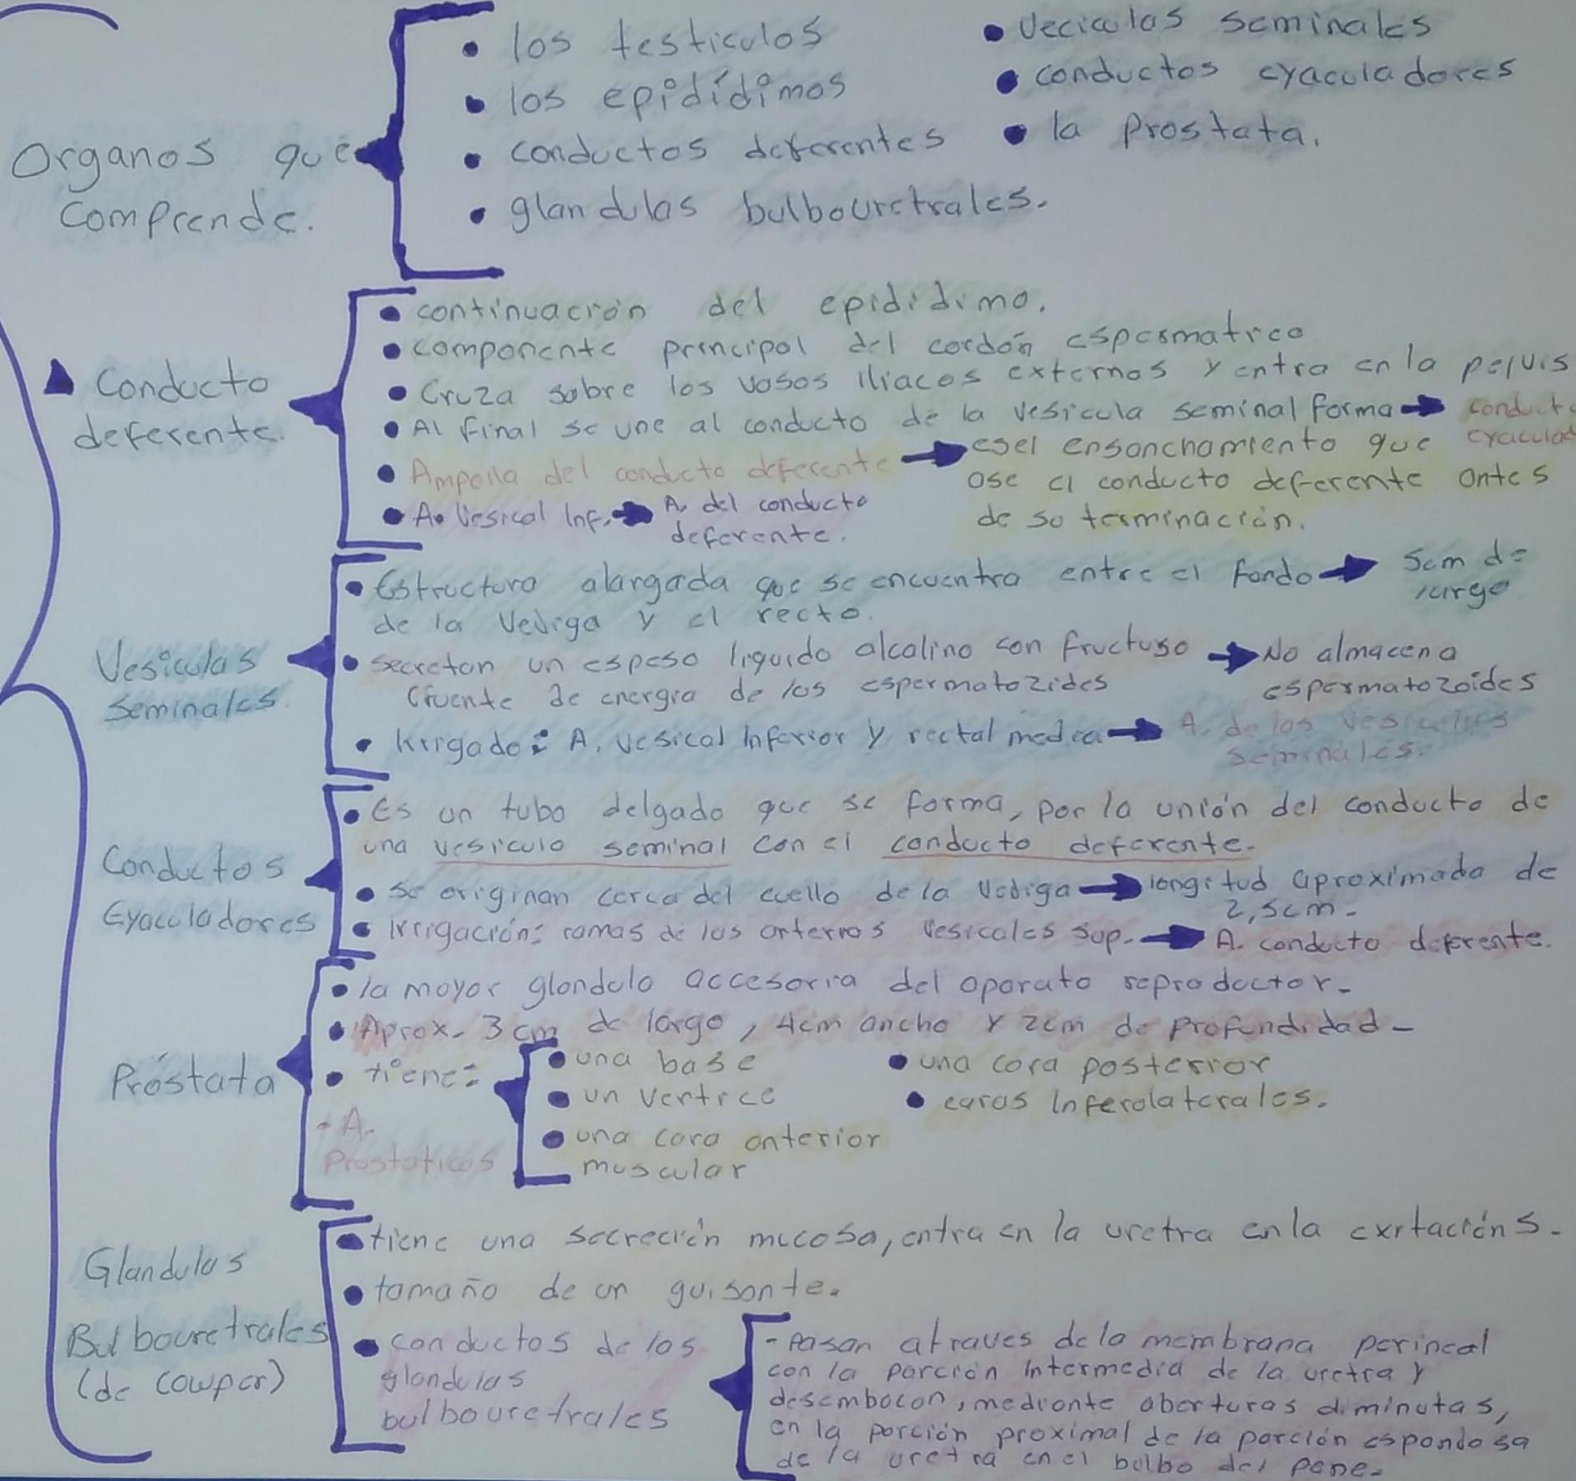 Organos que
comprende.
• los testiculos
• los epidídimos
• conductos deferentes
• glandulas bulbouretrales.
• Veciculas seminales
• conductos eyaculadores
• la Prostata.
Conducto
deferente.
• continuación del epididimo.
• componente principal del cordón espermatico
• Cruza sobre los vasos iliacos externos y entra en la pelvis
• Al final se une al conducto de la vesicula seminal forma → conducto
eyaculad
• Ampolla del conducto deferente → es el ensanchamiento que
ose el conducto deferente antes
de su terminación.
• A. Vesical Inf. → A. del conducto
deferente.
Vesiculas
Seminales.
• Estructura alargada que se encuentra entre el fondo → 5cm de
largo
de la Vejiga y el recto.
• secretan un espeso liquido alcalino con fructuso → No almacena
espermatozoides
(fuente de energia de los espermatozides
• Irrigado: A. vesical Inferior y rectal media → A. de las vesiculas
seminales.
Conductos
Eyaculadores
• Es un tubo delgado que se forma, por la unión del conducto de
una vesiculo seminal con el conducto deferente.
• Se originan cerca del cuello de la Vediga → longitud aproximada de
2,5cm.
• irrigación: ramas de las arterias vesicales sup. → A. conducto deferente.
Próstata
• la mayor glandula accesoria del aparato reproductor.
• Aprox. 3 cm de largo, 4cm ancho y 2cm de profundidad -
• tiene:
• una base
• un vertice
• una cara anterior
muscular
• una cara posterior
• caras Inferolaterales.
+ A.
Prostaticas
Glandulas
Bulbouretrales
(de cowper)
• tiene una secreción mucosa, entra en la uretra en la exitacións.
• tamaño de un guisante.
• conductos de las
glandulas
bulbouretrales
- Pasan atraves de la membrana perineal
con la porción Intermedia de la uretra y
desembocan, mediante aberturas diminutas,
en la porción proximal de la porción espondosa
de la uretra en el bulbo del pene.